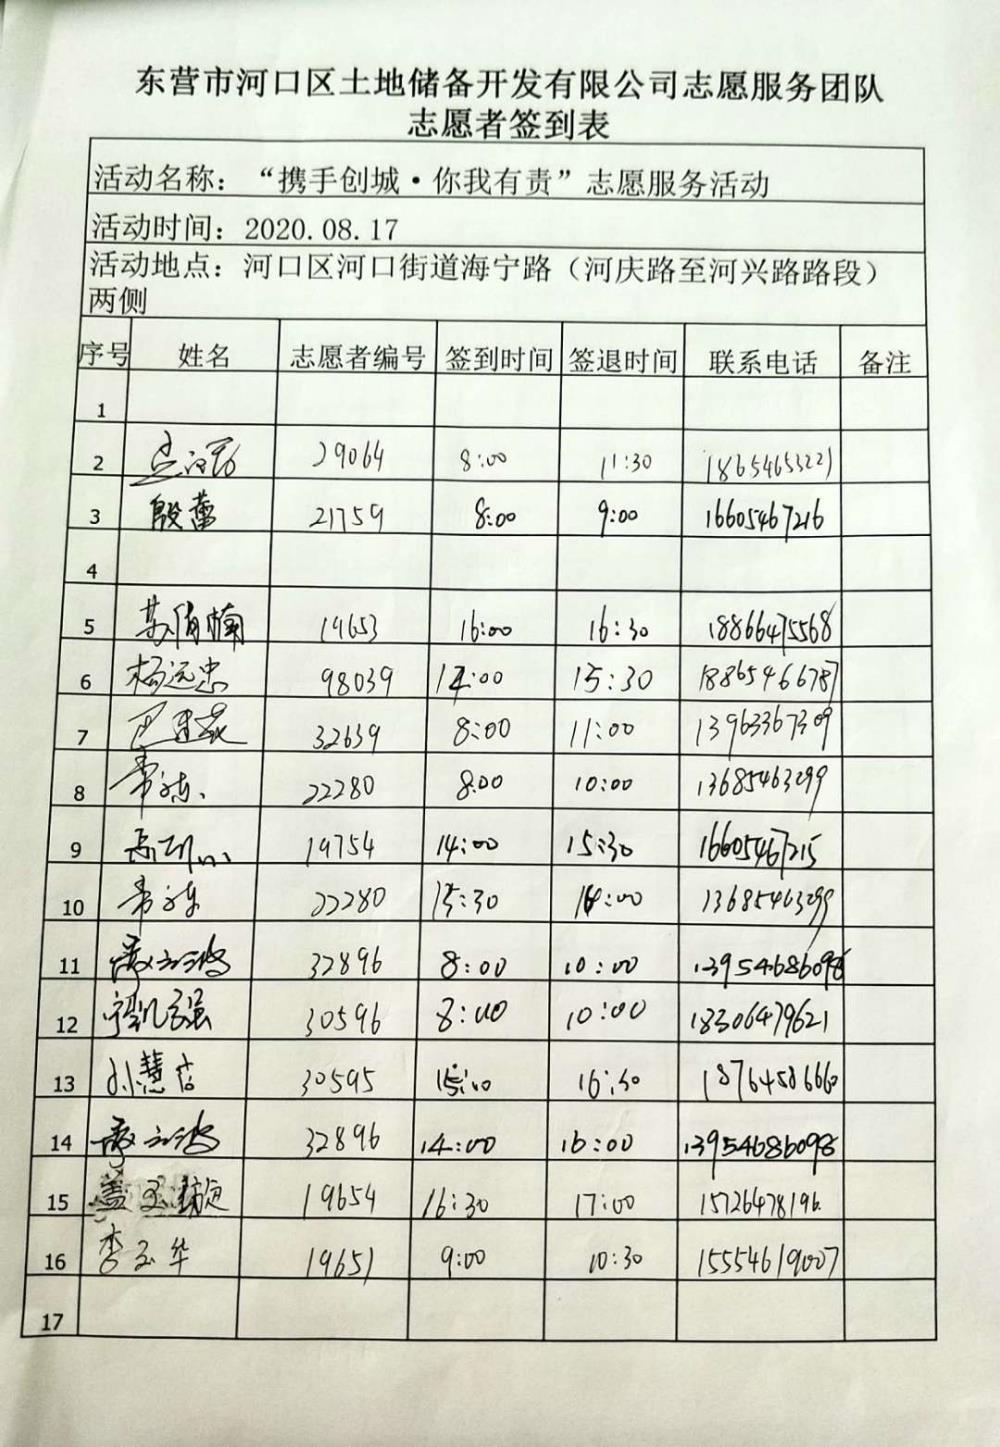 东营市河口区土地储备开发有限公司志愿服务团队
志愿者签到表
活动名称：“携手创城·你我有责”志愿服务活动
活动时间：2020.08.17
活动地点：河口区河口街道海宁路（河庆路至河兴路路段）
两侧
序号 姓名 志愿者编号 签到时间 签退时间 联系电话 备注
1
2 29064 8:00 11:30 18654653221
3 殷蕾 21759 8:00 9:00 16605467216
4
5 19653 16:00 16:30 18866475568
6 杨远忠 98039 14:00 15:30 18865466787
7 32639 8:00 11:00 13963367309
8 22280 8:00 10:00 13685463299
9 19754 14:00 15:30 16605467215
10 22280 15:30 16:00 13685463299
11 32896 8:00 10:00 13954686098
12 30596 8:00 10:00 18306479621
13 30595 16:30 18764586660
14 32896 14:00 16:00 13954686098
15 19654 16:30 17:00 15726478196
16 李玉华 19651 9:00 10:30 15554619007
17